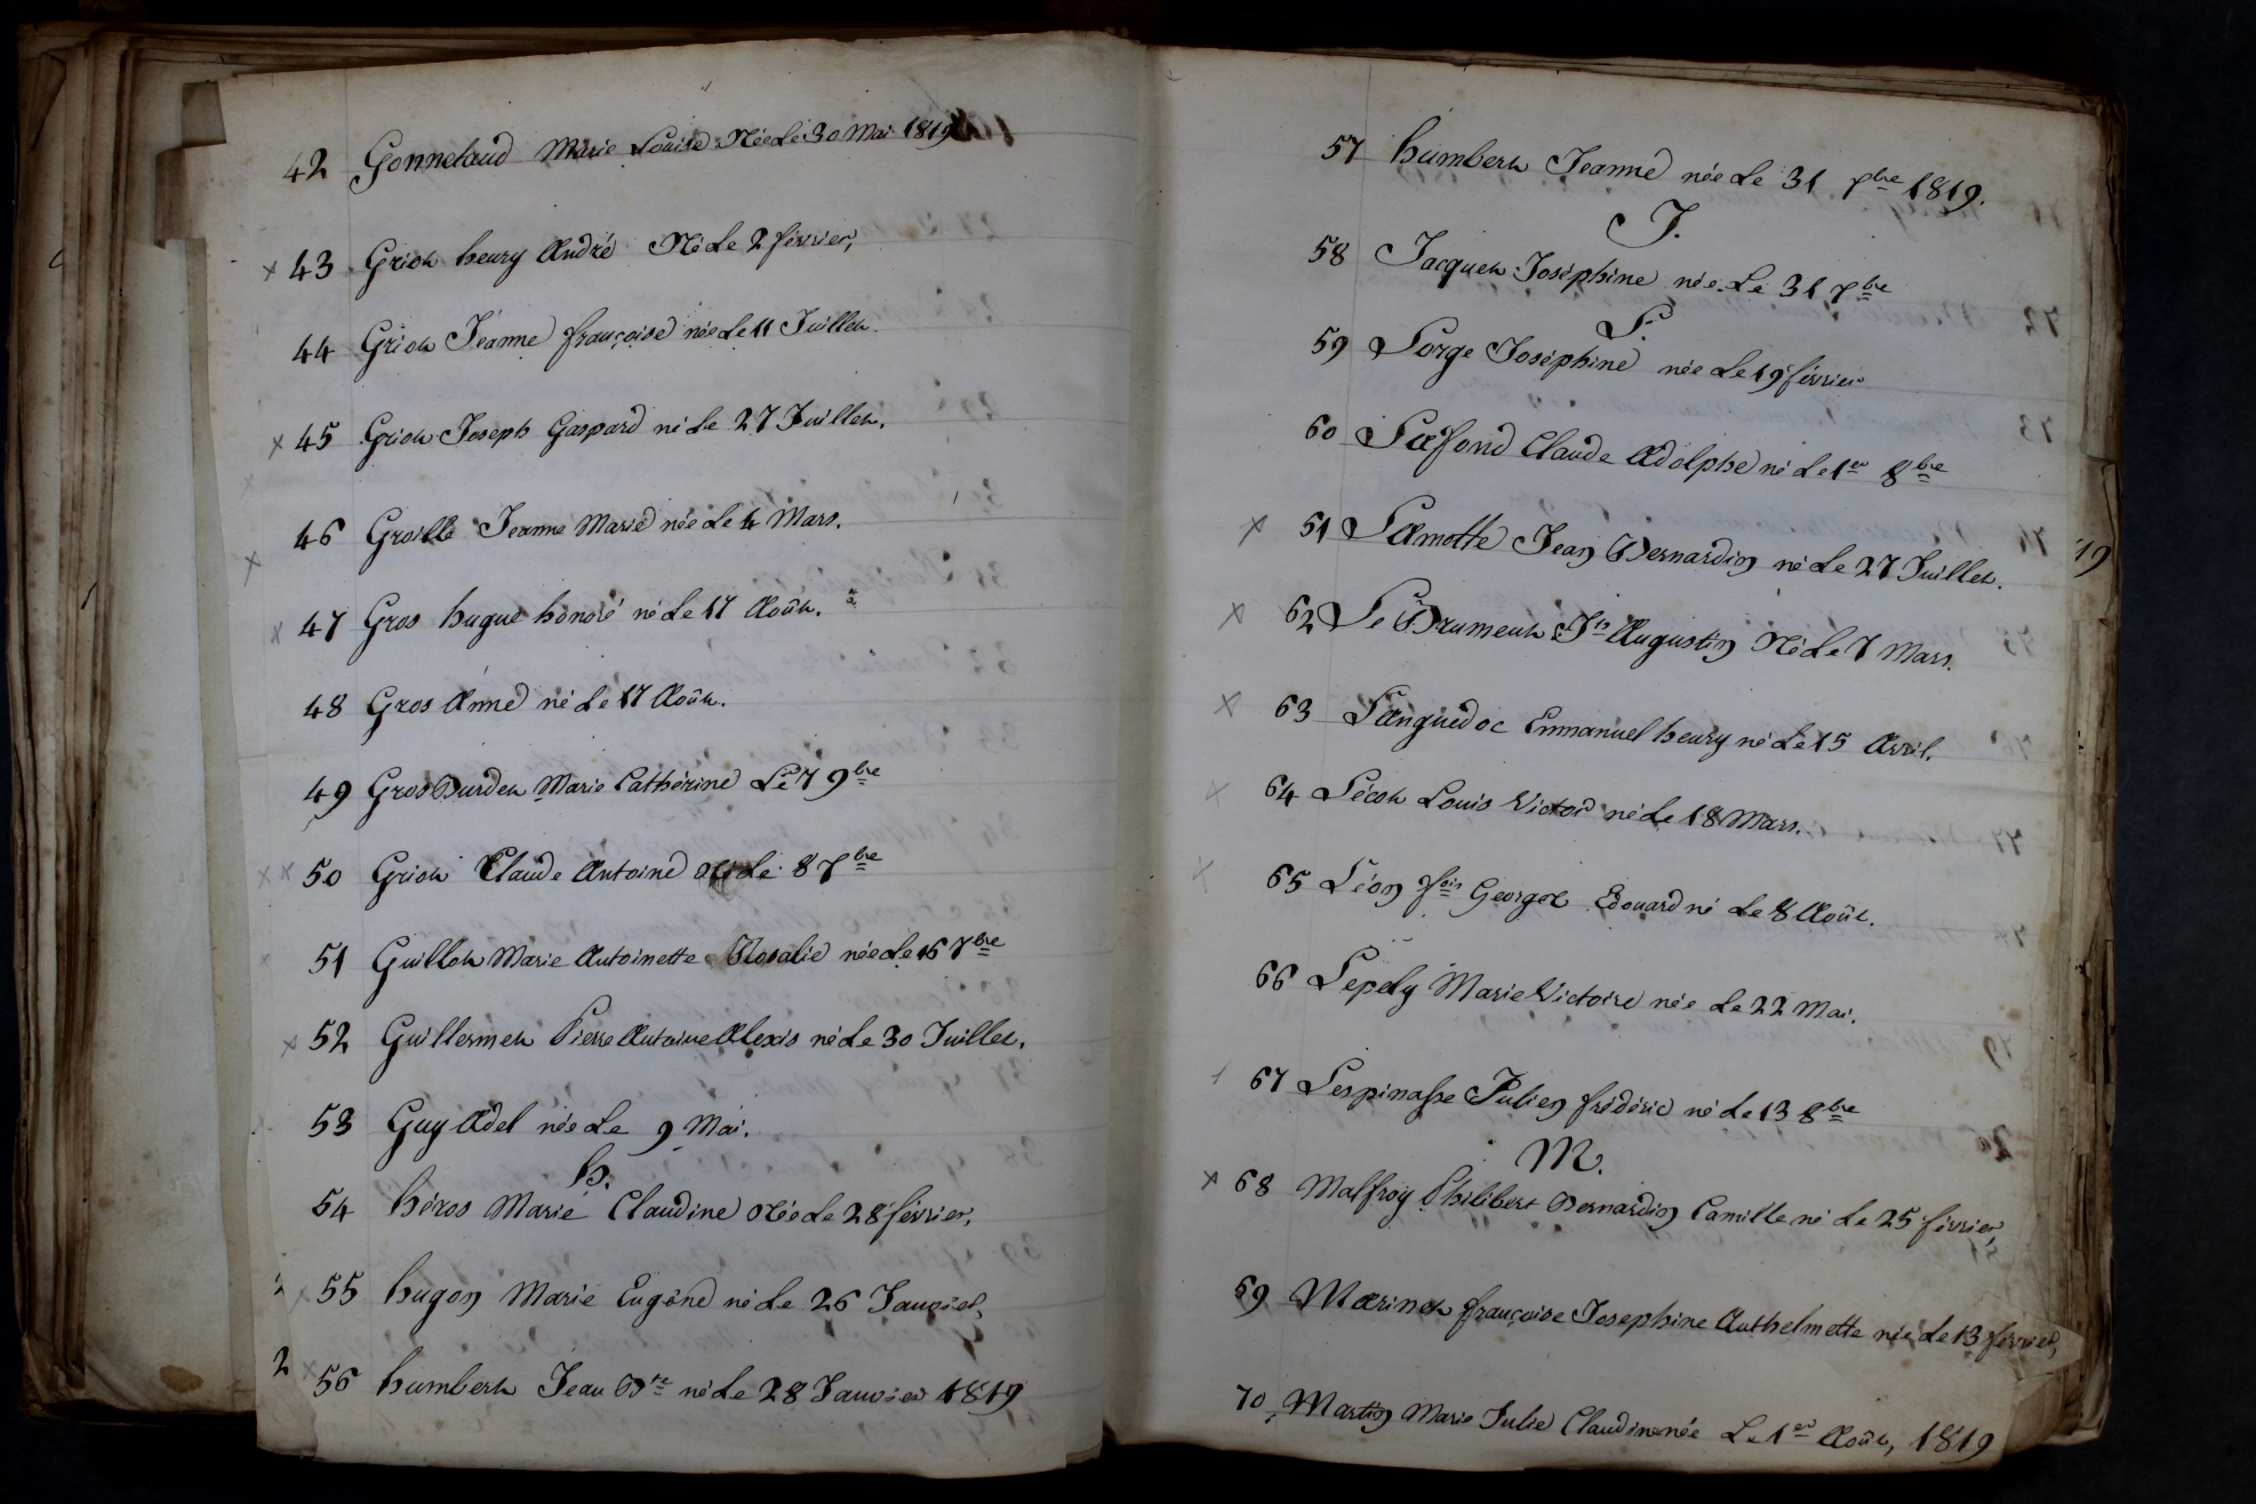 42 Gonnetaud Marie Louise Née Le 30 Mai 1819
43 Griot henry André Né Le 2 février,
44 Griot Jeanne françoise née Le 11 Juillet.
45 Griot Joseph Gaspard né Le 27 Juillet.
46 Groille Jeanne Marie née Le 4 Mars.
47 Gros hugue honoré né Le 17 Août.
48 Gros Anne né Le 17 Août.
49 Gros Burdet Marie Cathérine Le 7 9bre
50 Griot Claude Antoine Né Le 8 7bre
51 Guillot Marie Antoinette Rosalie née Le 16 7bre
52 Guillermet Pierre Antoine Alexis né Le 30 Juillet.
53 Guy Adel née Le 9 Mai.
h.
54 héros Marie Claudine Née Le 28 février,
55 hugon Marie Eugéne né Le 26 Janvier,
56 humbert Jean Bte né Le 28 Janvier 1819
57 humbert Jeanne née Le 31 7bre 1819.
J.
58 Jacquet Joséphine née Le 31 7bre
L.
59 Lorge Joséphine née Le 19 février
60 Lafond Claude Adolphe né Le 1er 8bre
51 Lamotte Jean Bernardin né Le 27 Juillet.
62 Le Brument Jh Augustin Né Le 7 Mars.
63 Languedoc Emmanuel henry né Le 15 Avril.
64 Lécot Louis Victor né Le 18 Mars.
65 Léon fois George Edouard né Le 8 Août.
66 Lepely Marie Victoire née Le 22 Mai.
67 Lespinasse Julien frédéric né Le 13 8bre
M.
68 Malfroy Philibert Bernardin Camille né Le 25 février,
69 Marinet françoise Josephine Anthelmette née Le 13 février,
70 Martin Marie Julie Claudine née Le 1er Août, 1819